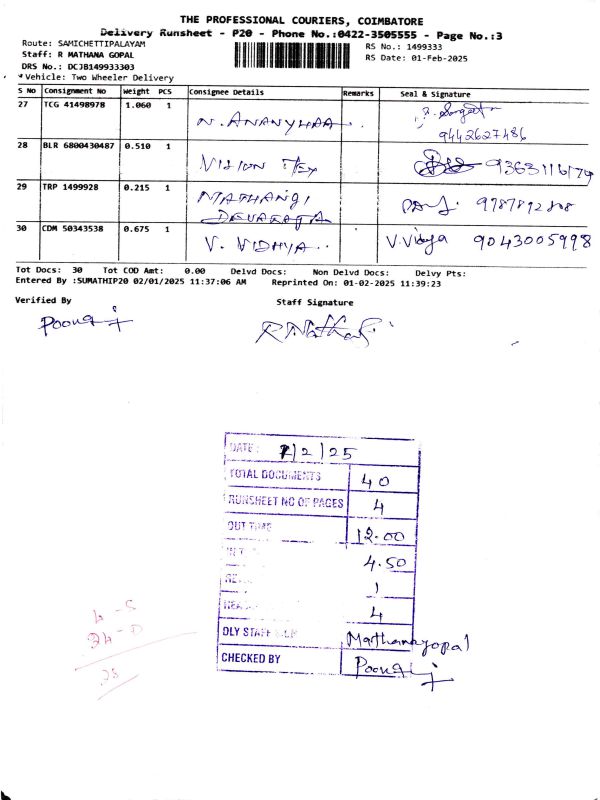 THE PROFESSIONAL COURIERS, COIMBATORE
Delivery Runsheet - P20 - Phone No.:0422-3505555 - Page No.:3
Route: SAMICHETTIPALAYAM
RS No.: 1499333
Staff: R MATHANA GOPAL
RS Date: 01-Feb-2025
DRS No.: DCJB149933303
*Vehicle: Two Wheeler Delivery
S No Consignment No Weight PCS Consignee Details Remarks Seal & Signature
27 TCG 41498978 1.060 1 N. ANANYHAA
9442627486
28 BLR 6800430487 0.510 1 VISION TEX 9363116179
29 TRP 1499928 0.215 1 MATHANGI
DEVARAJA 9787892808
30 CDM 50343538 0.675 1 V. VIDHYA V. Vidya 9043005998
Tot Docs: 30 Tot COD Amt: 0.00 Delvd Docs: Non Delvd Docs: Delvy Pts:
Entered By :SUMATHIP20 02/01/2025 11:37:06 AM Reprinted On: 01-02-2025 11:39:23
Verified By Staff Signature
DATE: 1/2/25
TOTAL DOCUMENTS 40
RUNSHEET NO OF PAGES 4
OUT TIME 12.00
4.50
1
4
DLY STAFF Mathanagopal
CHECKED BY
4-5
24-0
28